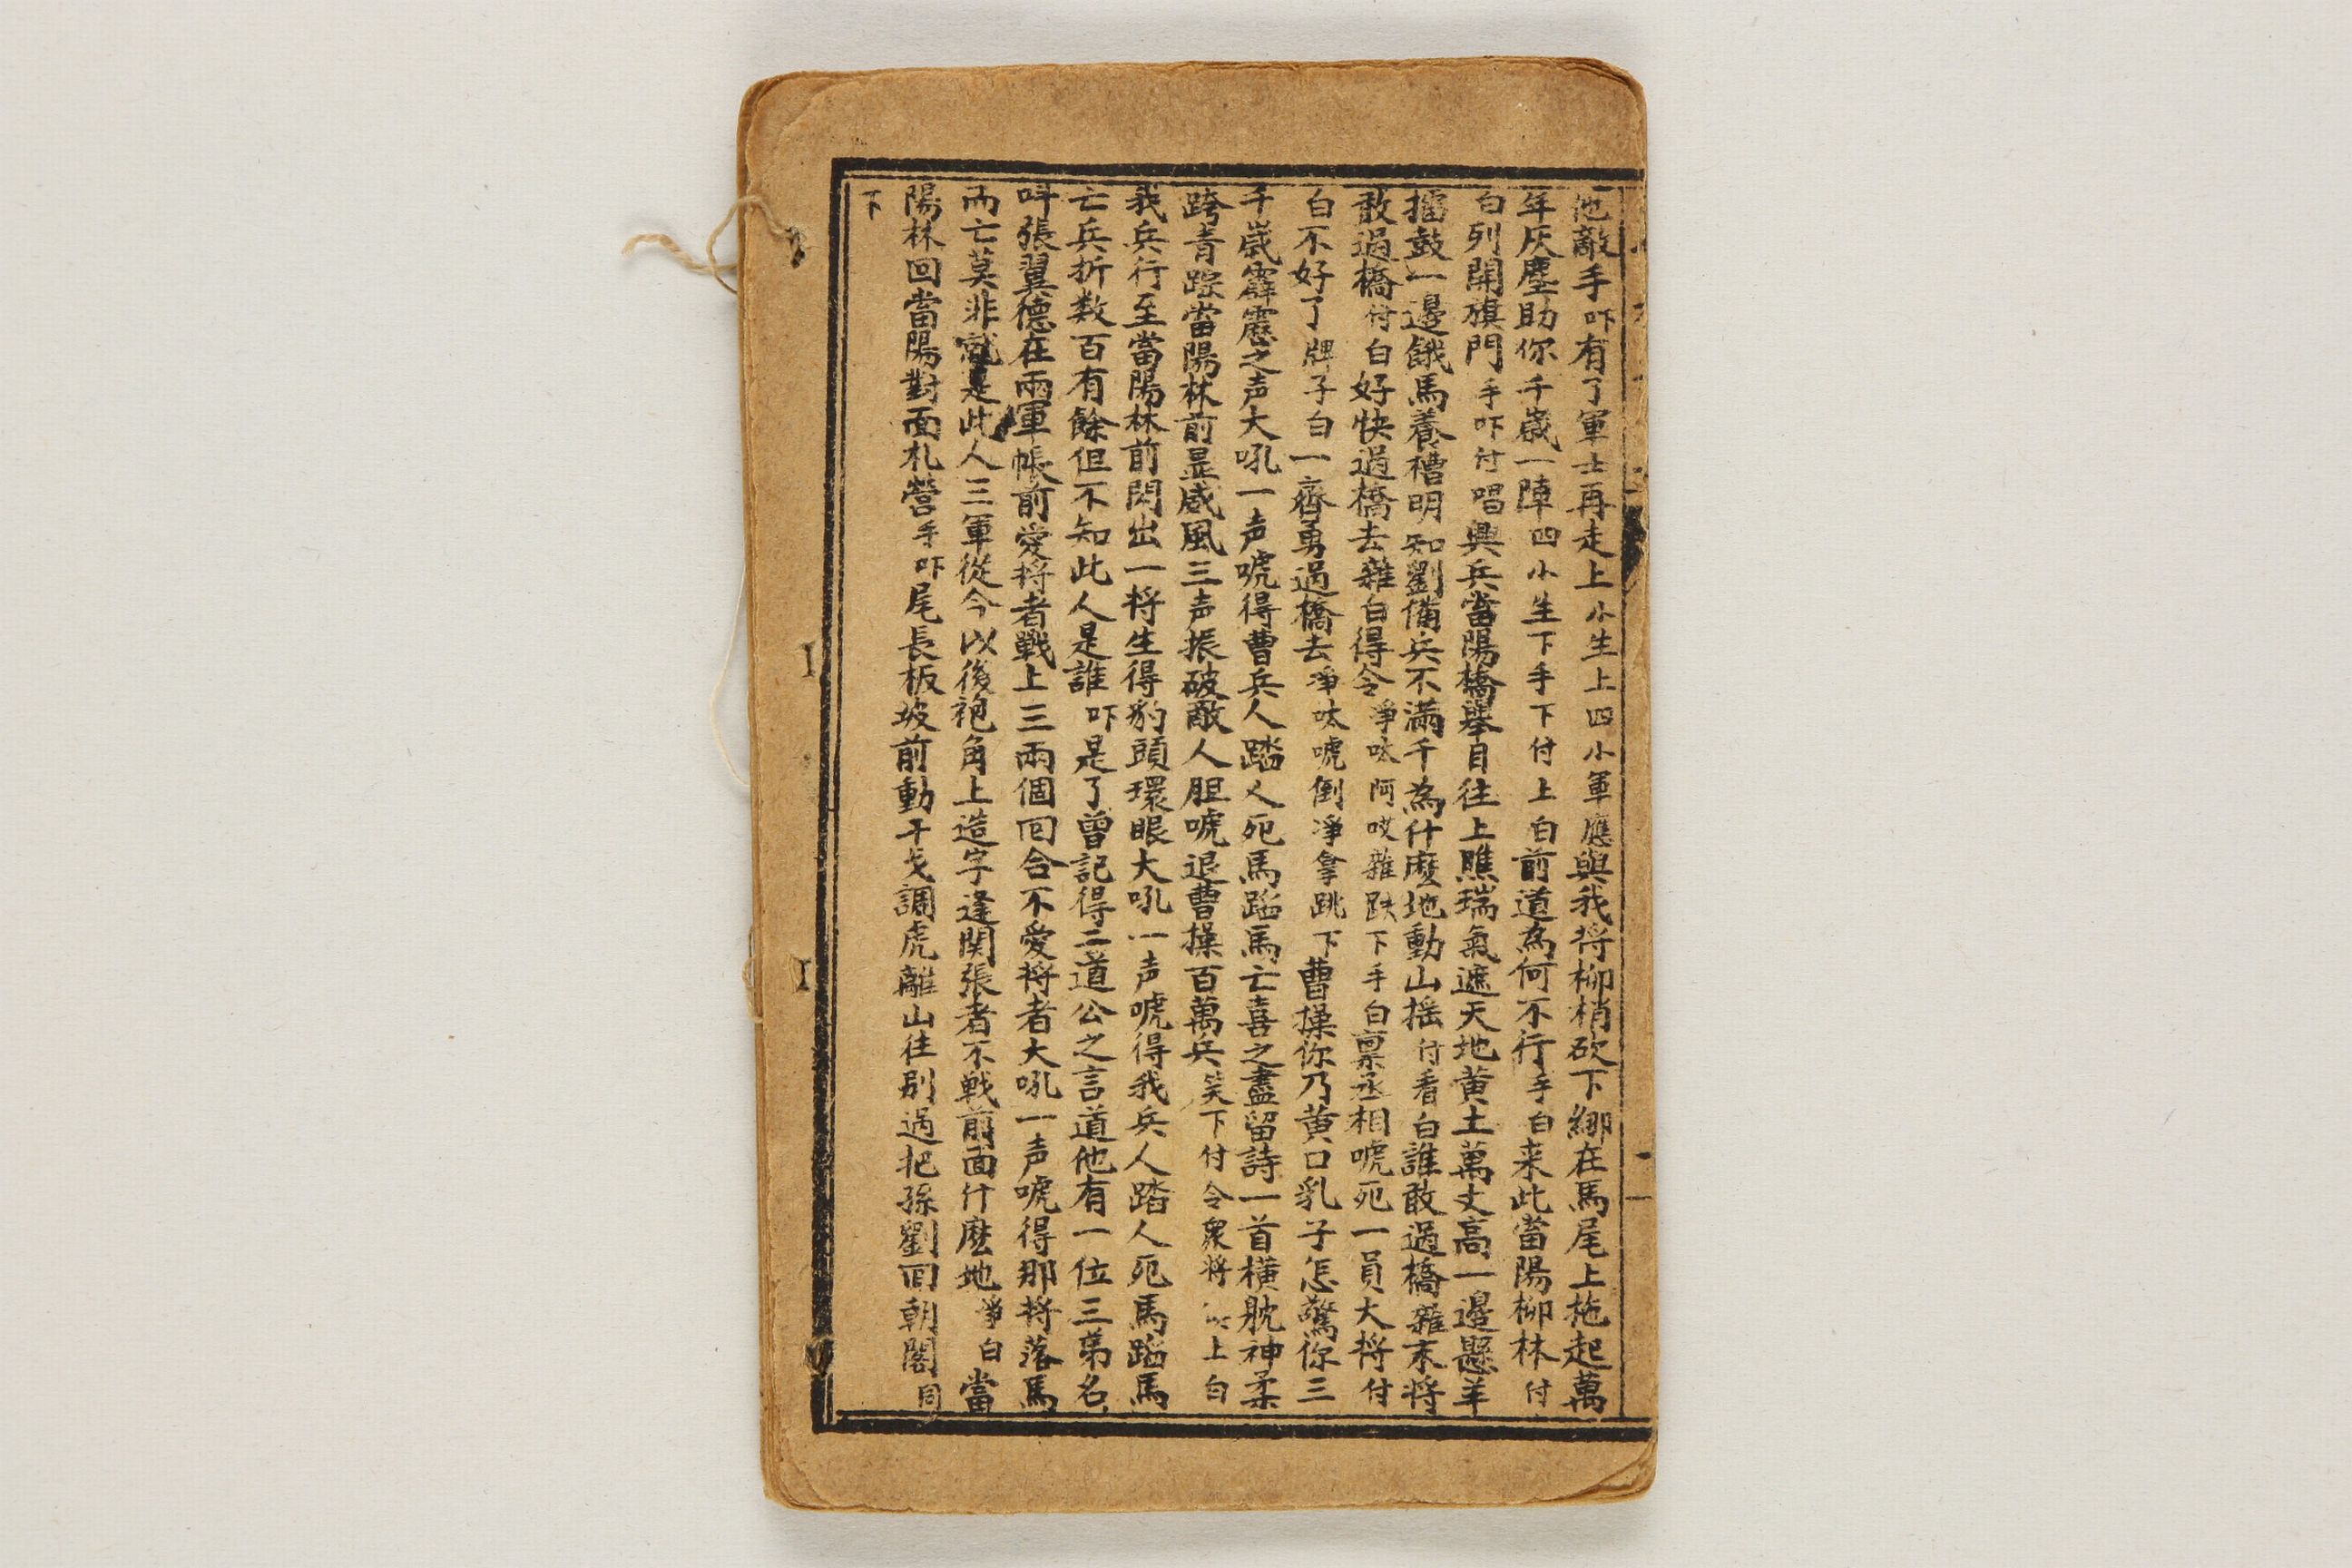 他敵手吓有了軍士再走上小生上四小軍應與我将柳梢砍下綁在馬尾上拖起萬
年灰塵助你千歲一陣四小生下手下付上白前道為何不行手白来此當陽柳林付
白列開旗門手吓付唱興兵當陽橋舉目往上瞧瑞氣遮天地黄土萬丈高一邉懸羊
擂鼓一邉餓馬養槽明知劉備兵不滿千為什麽地動山摇付看白誰敢過橋雜末将
敢過橋付白好快過橋去雜白得令淨呔阿哎雜跌下手白禀丞相唬死一員大将付
白不好了牌子白一齊勇過橋去淨呔唬倒淨拿跳下曹操你乃黄口乳子怎驚你三
千歲霹靂之声大吼一声唬得曹兵人踏人死馬蹈馬亡喜之盡留詩一首横躭神柔
跨青踪當陽林前显威風三声振破敵人胆唬退曹操百萬兵笑下付令衆将上白
我兵行至當陽林前閃出一将生得豹頭環眼大吼一声唬得我兵人踏人死馬蹈馬
亡兵折数百有餘但不知此人是誰吓是了曾記得二道公之言道他有一位三弟名
呌張翼德在兩軍帳前愛将者戰上三兩個回合不愛将者大吼一声唬得那将落馬
而亡莫非就是此人三軍從今以後袍角上造字逢関張者不戰前面什麽地淨白當
陽林回當陽對面札營手吓尾長板坡前動干戈調虎離山往别過把孫劉回朝閣同
下